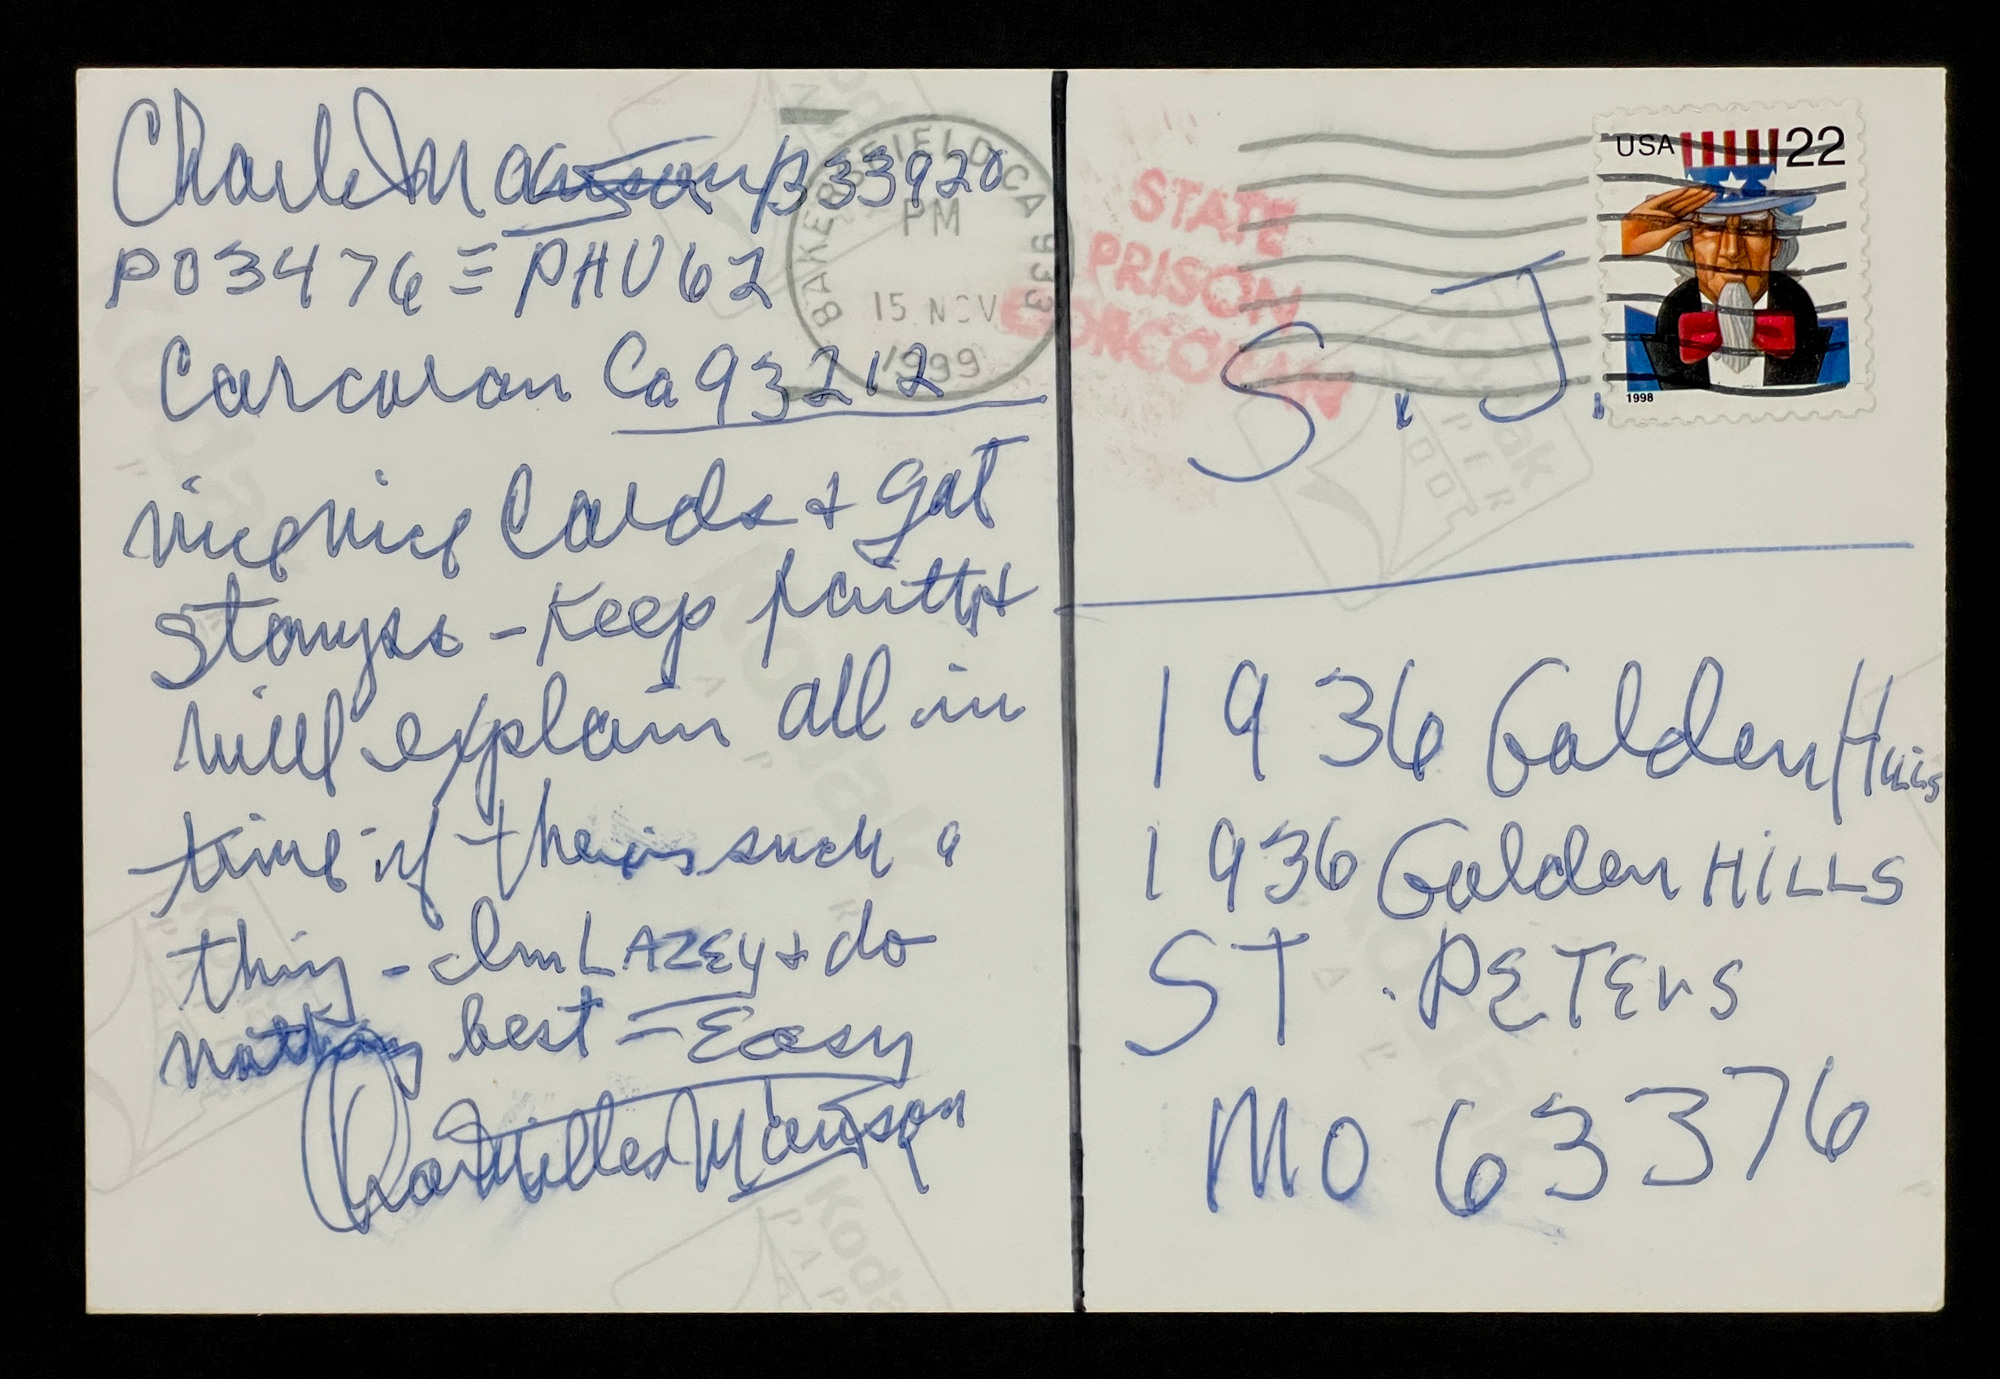 Charles Manson B33920
PO3476 = PHU62
Corcoran Ca 93212
nice nice Cards & got
Stamps - Keep faith &
will explain all in
time if there is such a
thing - Im LAZEY & do
nothing best = Easy
Charles Milles Manson
BAKERSFIELD CA 933
PM
15 NOV
1999
STATE
PRISON
CORCORAN
USA 22
1998
S. J.
1936 Golden Hills
1936 Golden HILLS
ST. PETERS
MO 63376
Kodak
PAPER